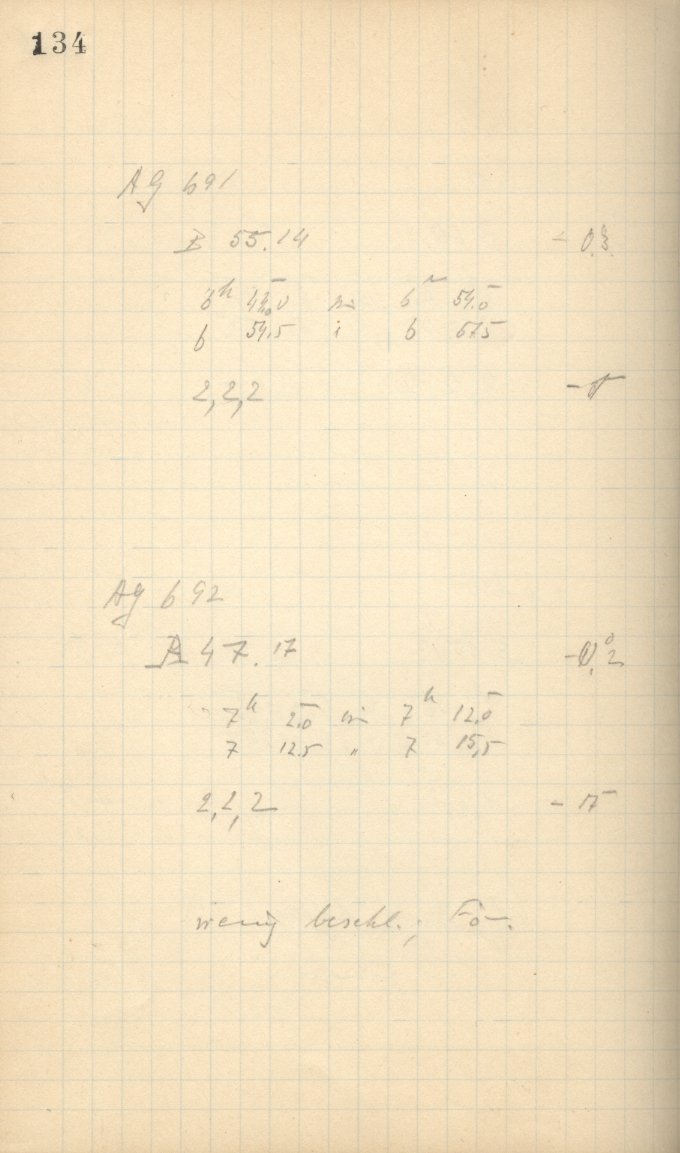 134
AG 691
B 55.14
- 0.3
6h 54.0
6 54.5 6
2,2,2
AG 692
B 47.17
-0°.2
7h 2.0 7h 12.0
7 12.5 " 7 15.5
2,2,2
- 17
wenig beschl.;